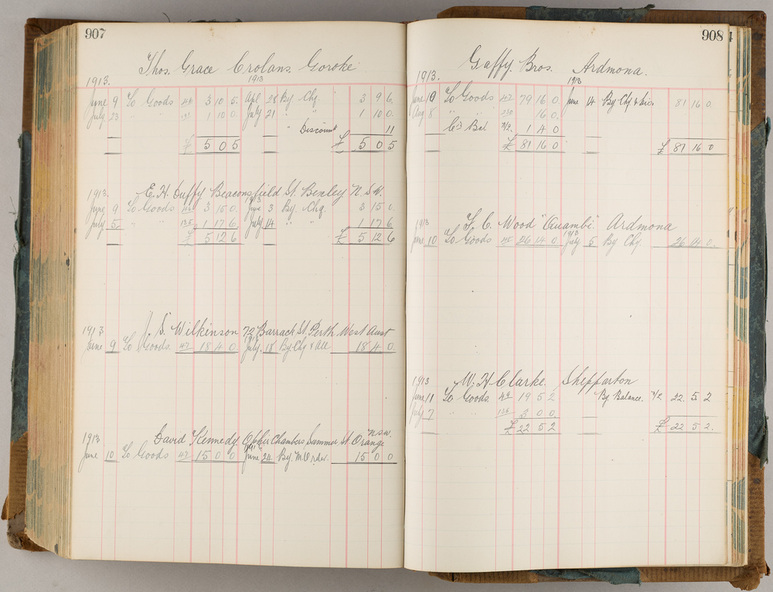 907
Thos. Grace Crolans Goroke
1913. 1913
June 9 To Goods 3 10 6 Apl 28 By Chq 3 9 6
July 23 " " 1 10 0 July 21 " " 1 10 0
" Discount 11
£ 5 0 6 £ 5 0 6
1913. E. H. Duffy Beaconsfield St. Bexley N.S.W.
1913
June 9 To Goods 3 15 0 June 3 By Chq 3 15 0
July 5 " " 1 17 6 July 14 " " 1 17 6
£ 5 12 6 £ 5 12 6
1913 J. S. Wilkinson 72 Barrack St. Perth West Aust
June 9 To Goods 43 18 4 0 July 18 By Chq & All 18 4 0
1913 David Kennedy Chambers Summer St Orange N.S.W.
June 10 To Goods 43 15 0 0 June 24 By M Order 15 0 0
908
Gaffy Bros. Ardmona.
1913. 1913
June 10 To Goods 79 16 0 June 14 By Chq & Dis 81 16 0
Aug 8 " 16 0
" Cr Bal 1 4 0
£ 81 16 0 £ 81 16 0
1913 F. C. Wood "Quambi" Ardmona
1913
June 10 To Goods 26 14 0 July 5 By Chq 26 14 0
1913 W. H. Clarke. Shepparton
June 11 To Goods 44 19 5 2 By Balance. 22 5 2
July 7 " 3 0 0
£ 22 5 2 £ 22 5 2